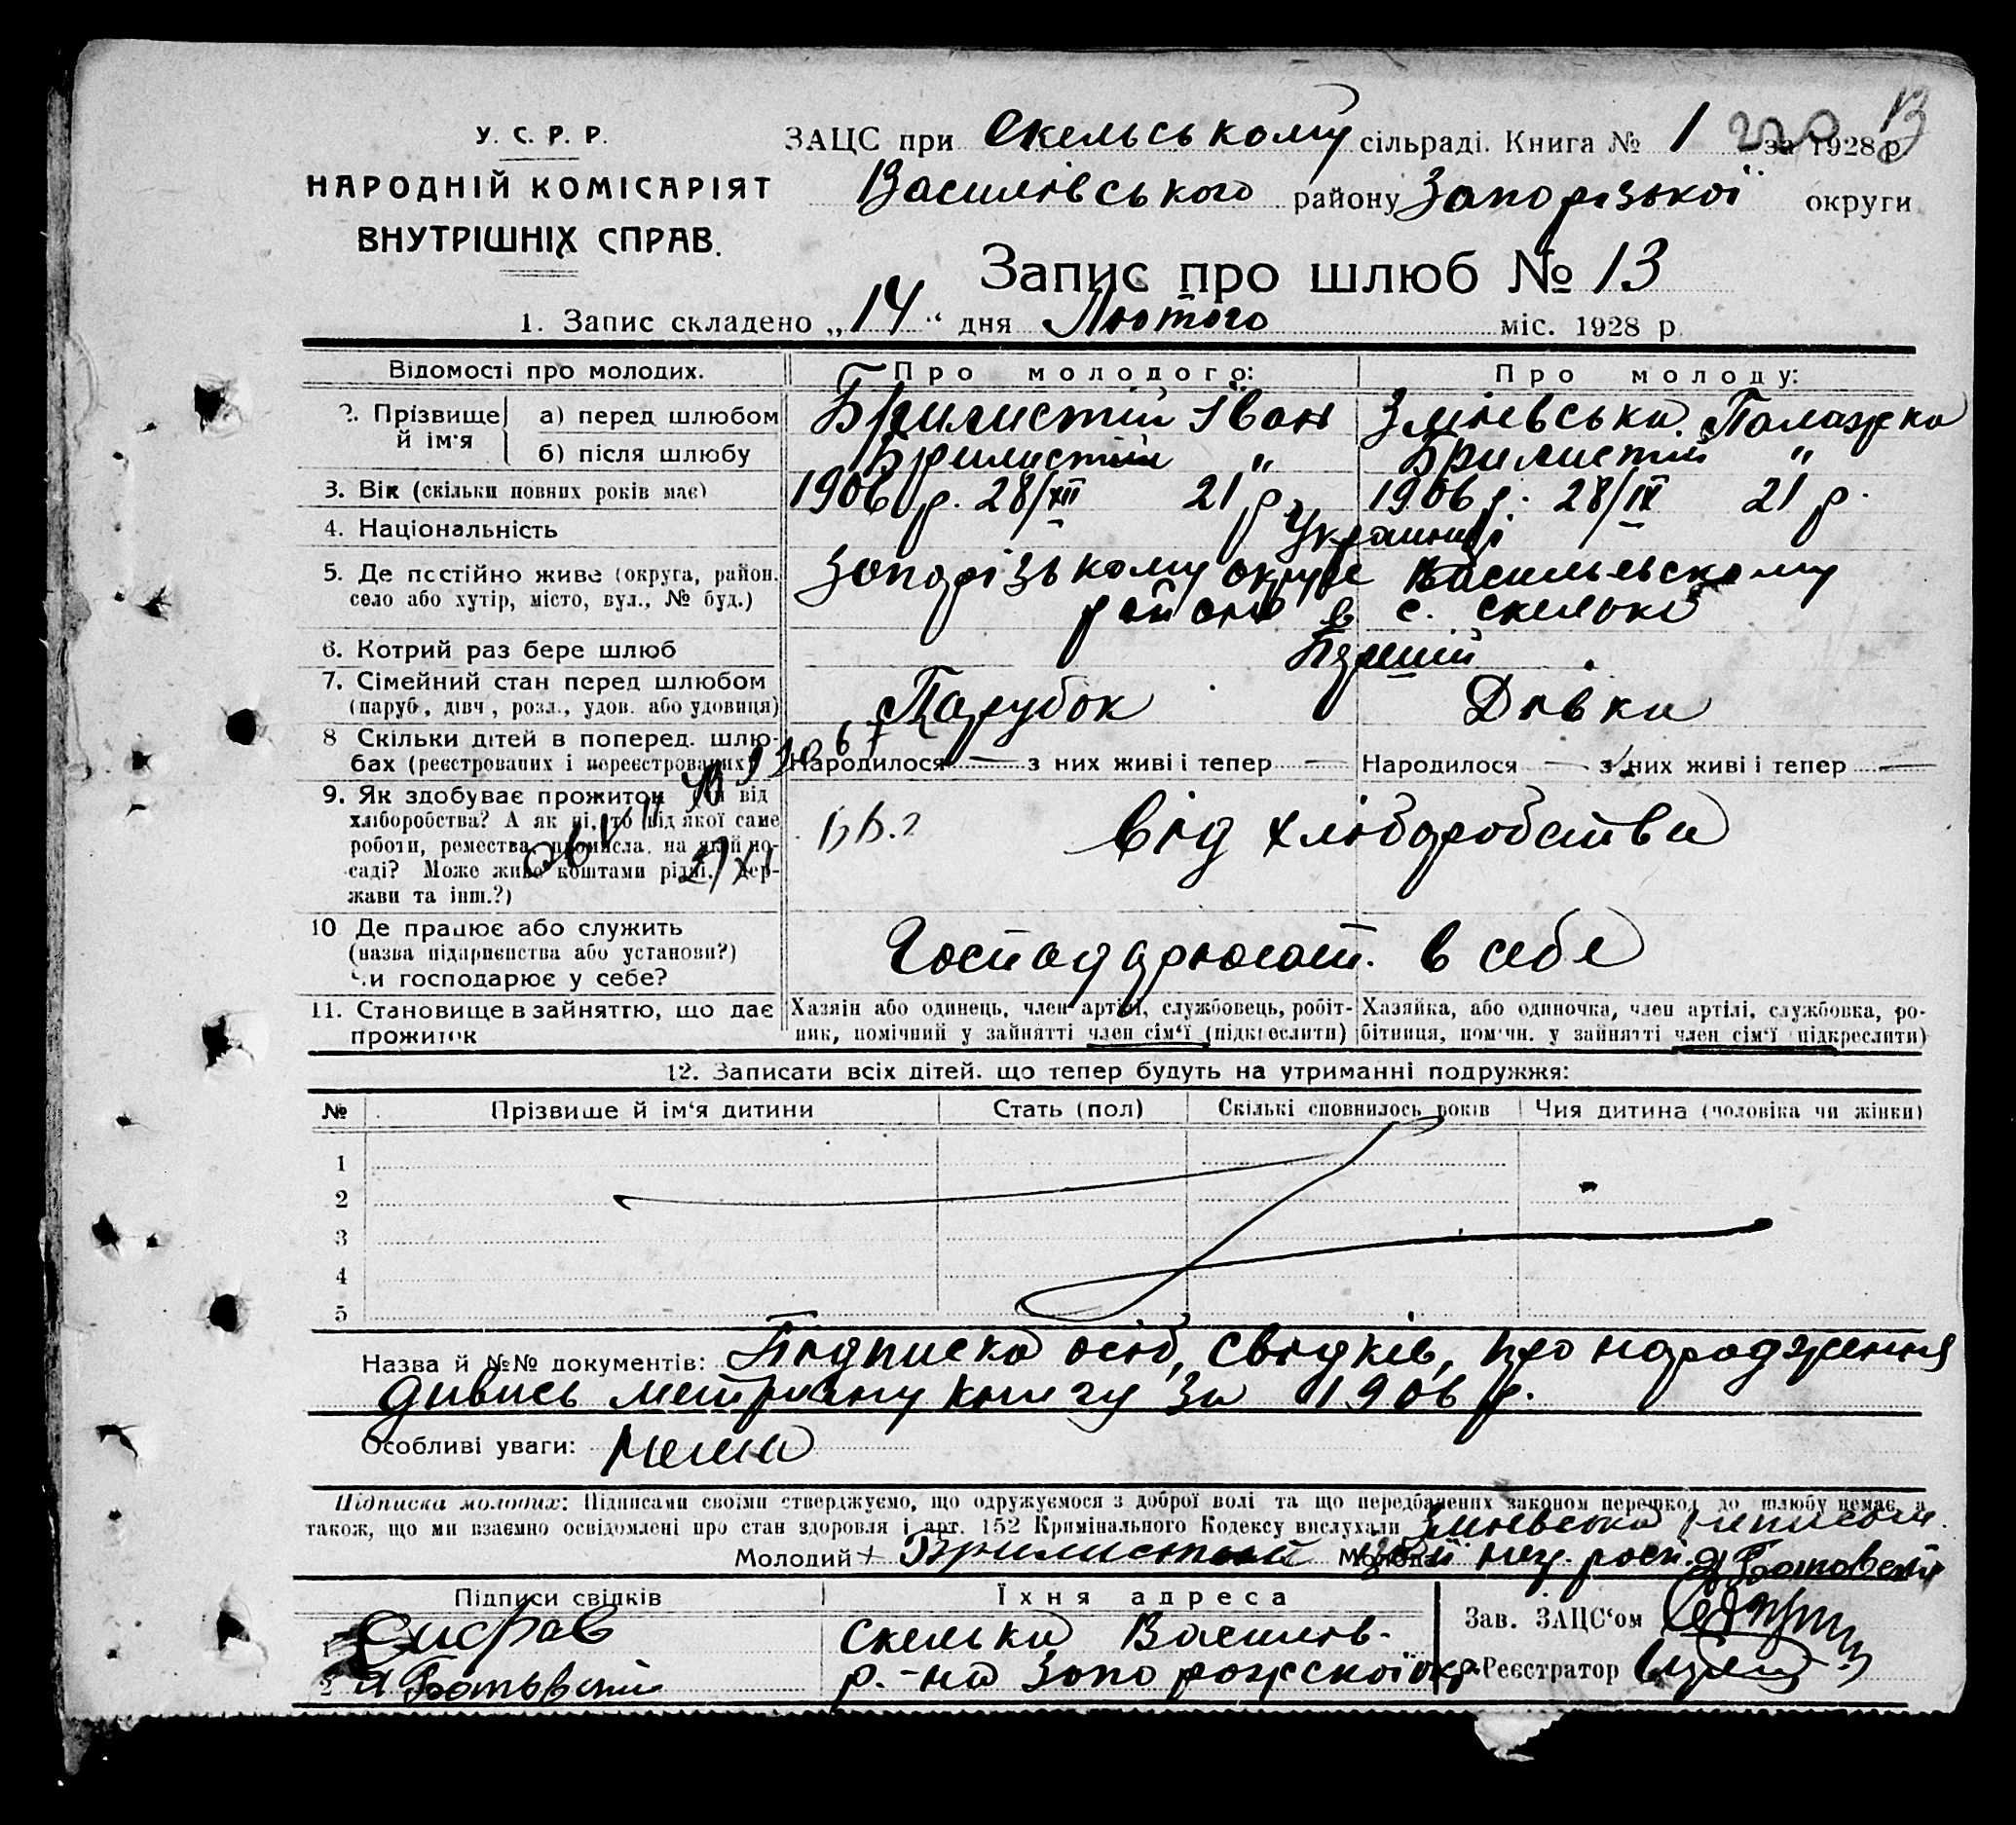 У. С. Р. Р.
НАРОДНІЙ КОМІСАРІЯТ
ВНУТРІШНІХ СПРАВ.
ЗАЦС при Скельському сільраді. Книга № 1 за 1928 р.
Василівського району Запорізької округи
Запис про шлюб № 13
1. Запис складено „14“ дня Лютого міс. 1928 р.
Відомості про молодих. Про молодого: Про молоду:
2. Прізвище й ім'я а) перед шлюбом Брилистій Іван Зміевська Палажка
б) після шлюбу Брилистій " Брилистій "
3. Вік (скільки повних років має) 1906 р. 28/XII 21 р. 1906 р. 28/IX 21 р.
4. Національність Украинці
5. Де постійно живе (округа, район, село або хутір, місто, вул., № буд.) Запорізькому окрузе Васильевскому
районе в с. Скельки
6. Котрий раз бере шлюб Перший
7. Сімейний стан перед шлюбом (паруб., дівч., розл., удов. або удовиця) Парубок Дівка
8 Скільки дітей в поперед. шлюбах (реєстрованих і нереєстрованих) Народилося — з них живі і тепер — Народилося — з них живі і тепер —
9. Як здобуває прожиток Чи від
хліборобства? А як ні, то від якої саме
роботи, ремества, промисла, на якій по-
саді? Може живе коштами рідні, дер-
жави та інш.?)
від хліборобства
10 Де працює або служить
(назва підприенства або установи?)
Чи господарює у себе?
Господарюють в себе
11. Становище в зайняттю, що дає
прожиток
Хазяін або одинець, член артілі, службовець, робіт-
ник, помічний у зайнятті член сім'ї (підкреслити)
Хазяйка, або одиночка, член артілі, службовка, ро-
бітниця, пом'чн. у зайнятті член сім'ї (підкреслити)
12. Записати всіх дітей, що тепер будуть на утриманні подружжя:
№ Прізвище й ім'я дитини Стать (пол) Скількі сповнилось років Чия дитина (чоловіка чи жінки)
1
2
3
4
5
Назва й №№ документів: Підписка осіб, свідків, про народження
дивись метричну книгу за 1906 р.
Особливі уваги: Нема
Підписка молодих: Підписами своїми стверджуємо, що одружуємося з доброї волі та що передбачених законом перешкод до шлюбу немає, а
також, що ми взаємно освідомлені про стан здоровля і арт. 152 Кримінального Кодексу вислухали Зміевська
Молодий + Брилистий Молода
Підписи свідків Їхня адреса
Зав. ЗАЦС'ом
1 Скельки Василів-
2 р.-на Запорожскої окр.
Реєстратор